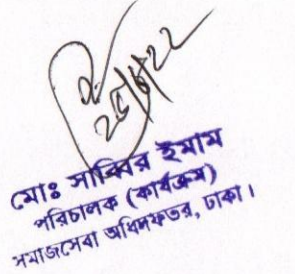 ২৫/৬/২২
মোঃ সাব্বির ইমাম
পরিচালক (কার্যক্রম)
সমাজসেবা অধিদফতর, ঢাকা।